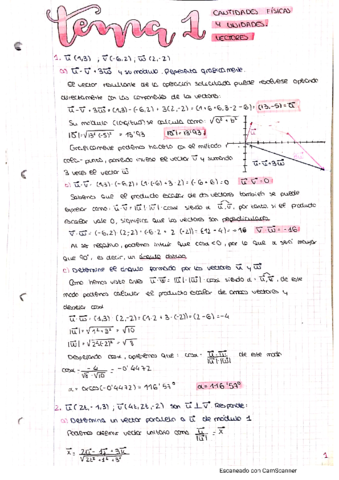 tema 1
CANTIDADES FÍSICAS
Y UNIDADES.
VECTORES
1. u(1,3), v(-6,2), w(2,-2)
a) u - v + 3w y su módulo. Represéntalo gráficamente.
El vector resultante de la operación solicitada puede resolverse operando
directamente con las componentes de los vectores:
u - v + 3w = (1,3) - (-6,2) + 3(2,-2) = (1+6+6, 3-2-6) = (13,-5) =
Su módulo (longitud) se calcula como: √a² + b²
= √13² (-5)² = 13'93 = 13'93
Gráficamente podemos hacerlo con el método
cola-punta, poniendo inverso el vector v y sumando
3 veces el vector w
u - v + 3w
b) u · v = (1,3) · (-6,2) = (1·(-6) + 3·2) = (-6+6) = 0 u · v = 0
Sabemos que el producto escalar de dos vectores también se puede
expresar como u · v = |u| · |v| · cosα siendo α u,v, por tanto si el producto
escalar vale 0, significa que los vectores son perpendiculares
v · w = (-6,2) (2,-2) = (-6·2 + 2·(-2)) = (-12-4) = -16 v · w = -16
Al ser negativo, podemos intuir que cosα<0, por lo que α será mayor
que 90°, es decir, un ángulo obtuso
c) Determine el ángulo formado por los vectores u y w
Como hemos visto antes u · w = |u| · |w| · cosα siendo α = u,w, de este
modo podemos calcular el producto escalar de ambos vectores y
despejar cosα
u · w = (1,3) · (2,-2) = (1·2 + 3·(-2)) = (2-6) = -4
|u| = √1² + 3² = √10
|w| = √2² (-2)² = √8
Despejando cosα, obtenemos que: cosα = u · w / |u| · |w| de este modo
cosα = -4 / √8 · √10 = -0'4472
α = arcos(-0'4472) = 116'57° α = 116'57°
2. u(2t, -1, 3), v(4t, 2t, -2) son u ⊥ v. Responde:
a) Determina un vector paralelo a u de módulo 1
Podemos definir vector unitario como u / |u| = x
1
Escaneado con CamScanner